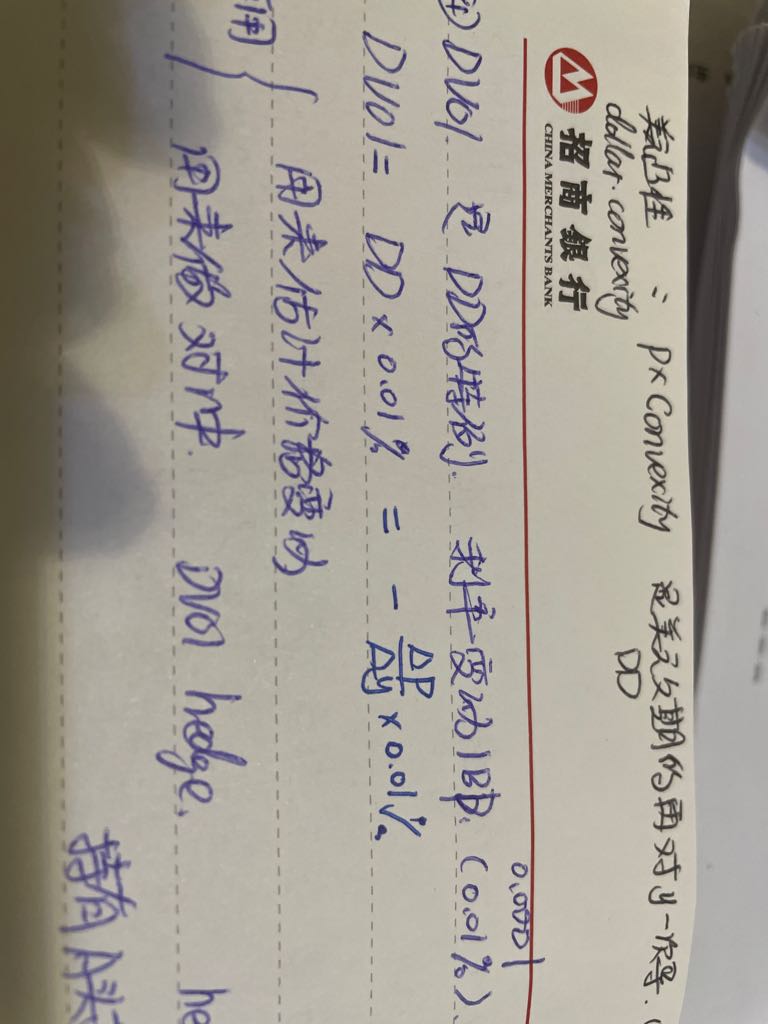 美元凸性 : P×Convexity 是美元久期的再对y一次导. (
dollar. convexity DD
招商银行
CHINA MERCHANTS BANK
0.0001
注) DV01 是 DD的特例. 利率变动1BP. (0.01%)、
DV01= DD × 0.01% = - ΔP/Δy × 0.01%.
用 { 用来估计价格变动
用来做对冲. DV01 hedge. he
持有